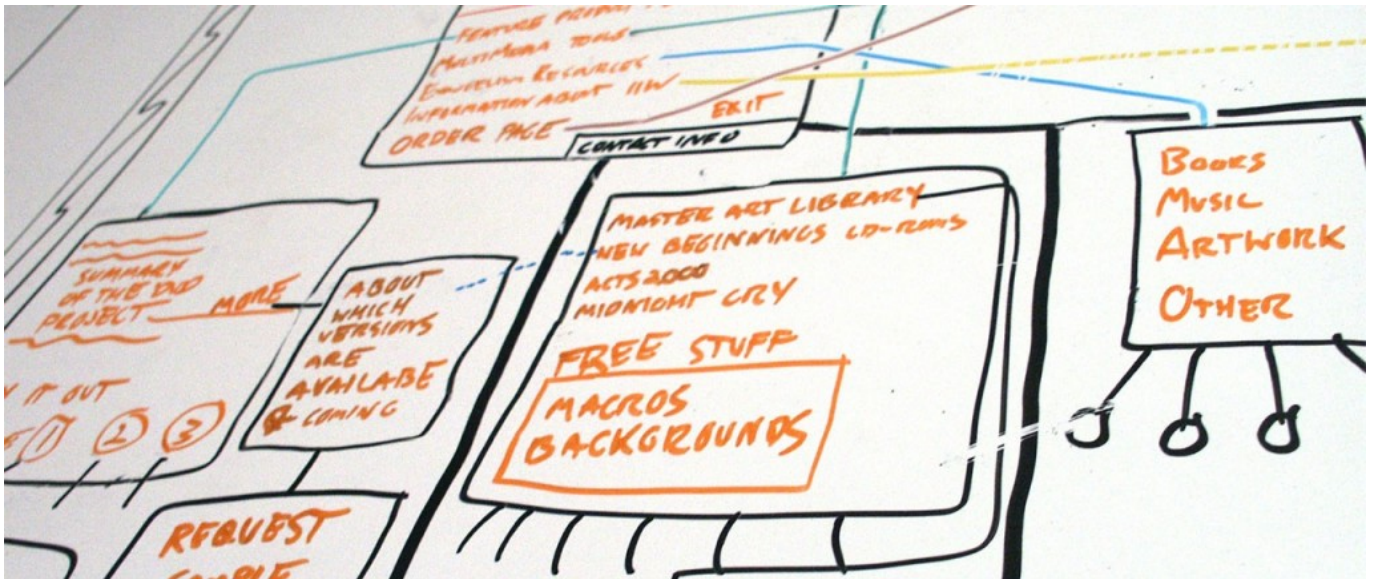 FEATURE PRODUCT
MULTIMEDIA TOOLS
EVANGELISM RESOURCES
INFORMATION ABOUT IIW
ORDER PAGE
EXIT
CONTACT INFO
SUMMARY
OF THE DVD
PROJECT
MORE
IT OUT
1 2 3
ABOUT
WHICH
VERSIONS
ARE
AVAILABE
& COMING
REQUEST
SAMPLE
MASTER ART LIBRARY
NEW BEGINNINGS CD-ROMS
ACTS 2000
MIDNIGHT CRY
FREE STUFF
MACROS
BACKGROUNDS
BOOKS
MUSIC
ARTWORK
OTHER